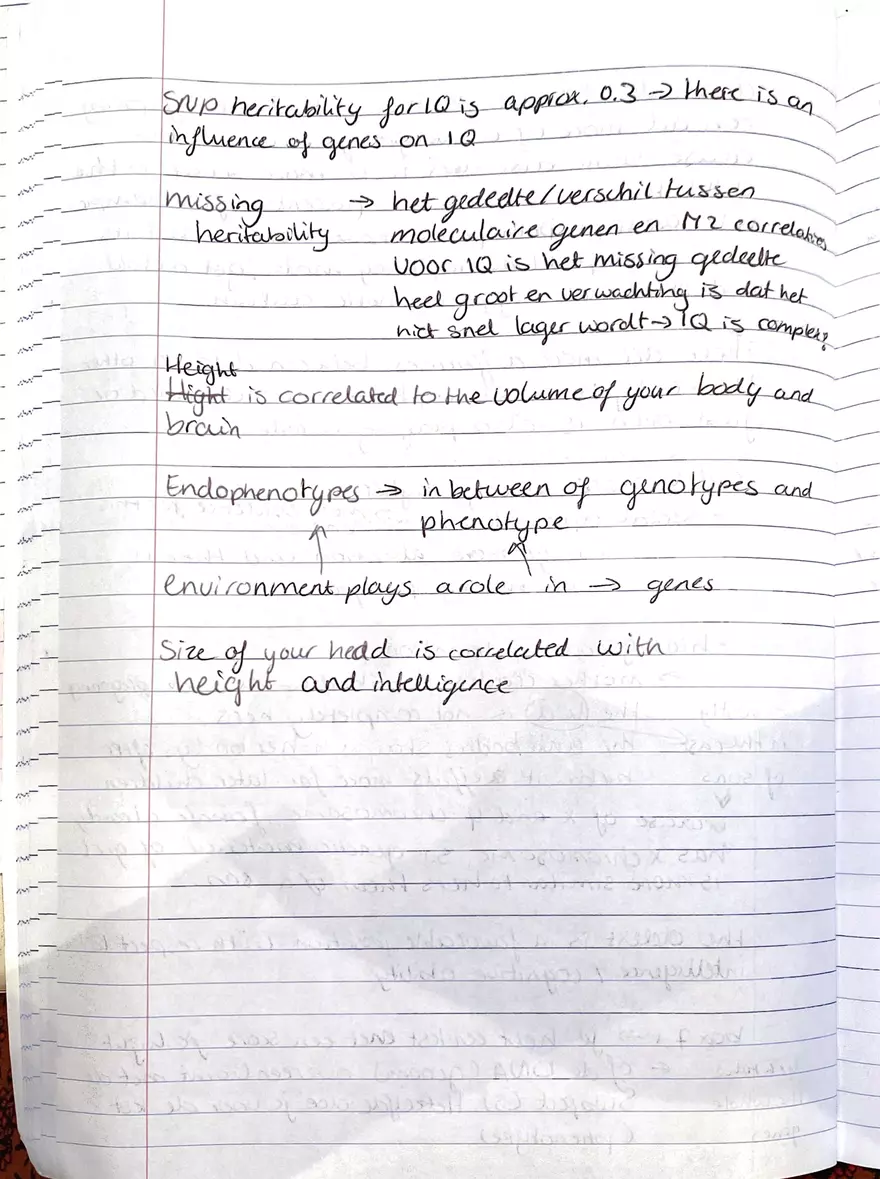 SNP heritability for IQ is approx. 0.3 → there is an
influence of genes on IQ
missing → het gedeelte/verschil tussen
heritability moleculaire genen en MZ correlaties
voor IQ is het missing gedeelte
heel groot en verwachting is dat het
niet snel lager wordt → IQ is complex?
Height
Hight is correlated to the volume of your body and
brain
Endophenotypes → in between of genotypes and
phenotype
environment plays a role in → genes
Size of your head is correlated with
height and intelligence